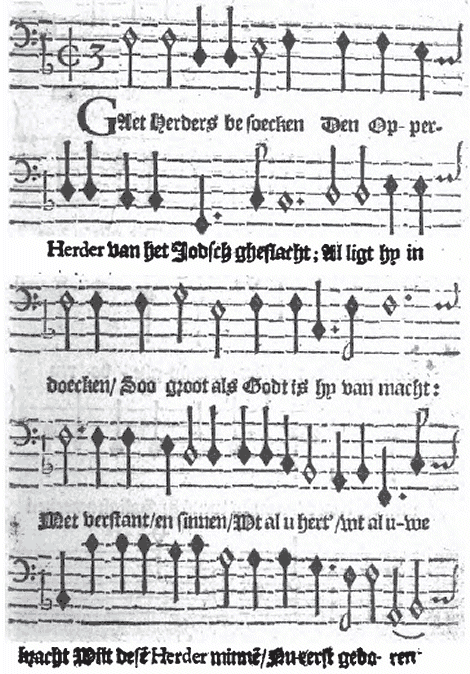 GAet Herders besoecken Den Op-per-
Herder van het Jodsch gheslacht; Al ligt hy in
doecken/ Soo groot als Godt is hy van macht:
Met verstant/en sinnen/Wt al u hert'/wt al u-we
kracht Wilt desē Herder minnē/Nu eerst gebo- ren